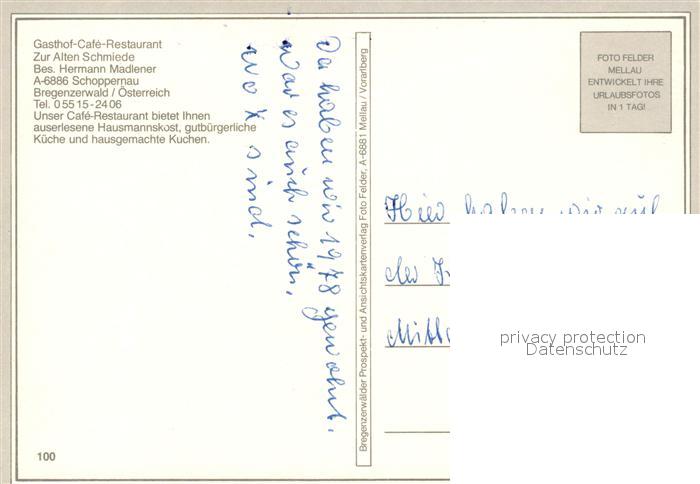 Gasthof-Café-Restaurant
Zur Alten Schmiede
Bes. Hermann Madlener
A-6886 Schoppernau
Bregenzerwald / Österreich
Tel. 0 55 15 - 24 06
Unser Café-Restaurant bietet Ihnen
auserlesene Hausmannskost, gutbürgerliche
Küche und hausgemachte Kuchen.
Da haben wir 1978 gewohnt.
war es auch schön.
wo X sind.
100
Bregenzerwälder Prospekt- und Ansichtskartenverlag Foto Felder, A-6881 Mellau / Vorarlberg
FOTO FELDER
MELLAU
ENTWICKELT IHRE
URLAUBSFOTOS
IN 1 TAG!
Hier haben wir auf
der
privacy protection
Datenschutz